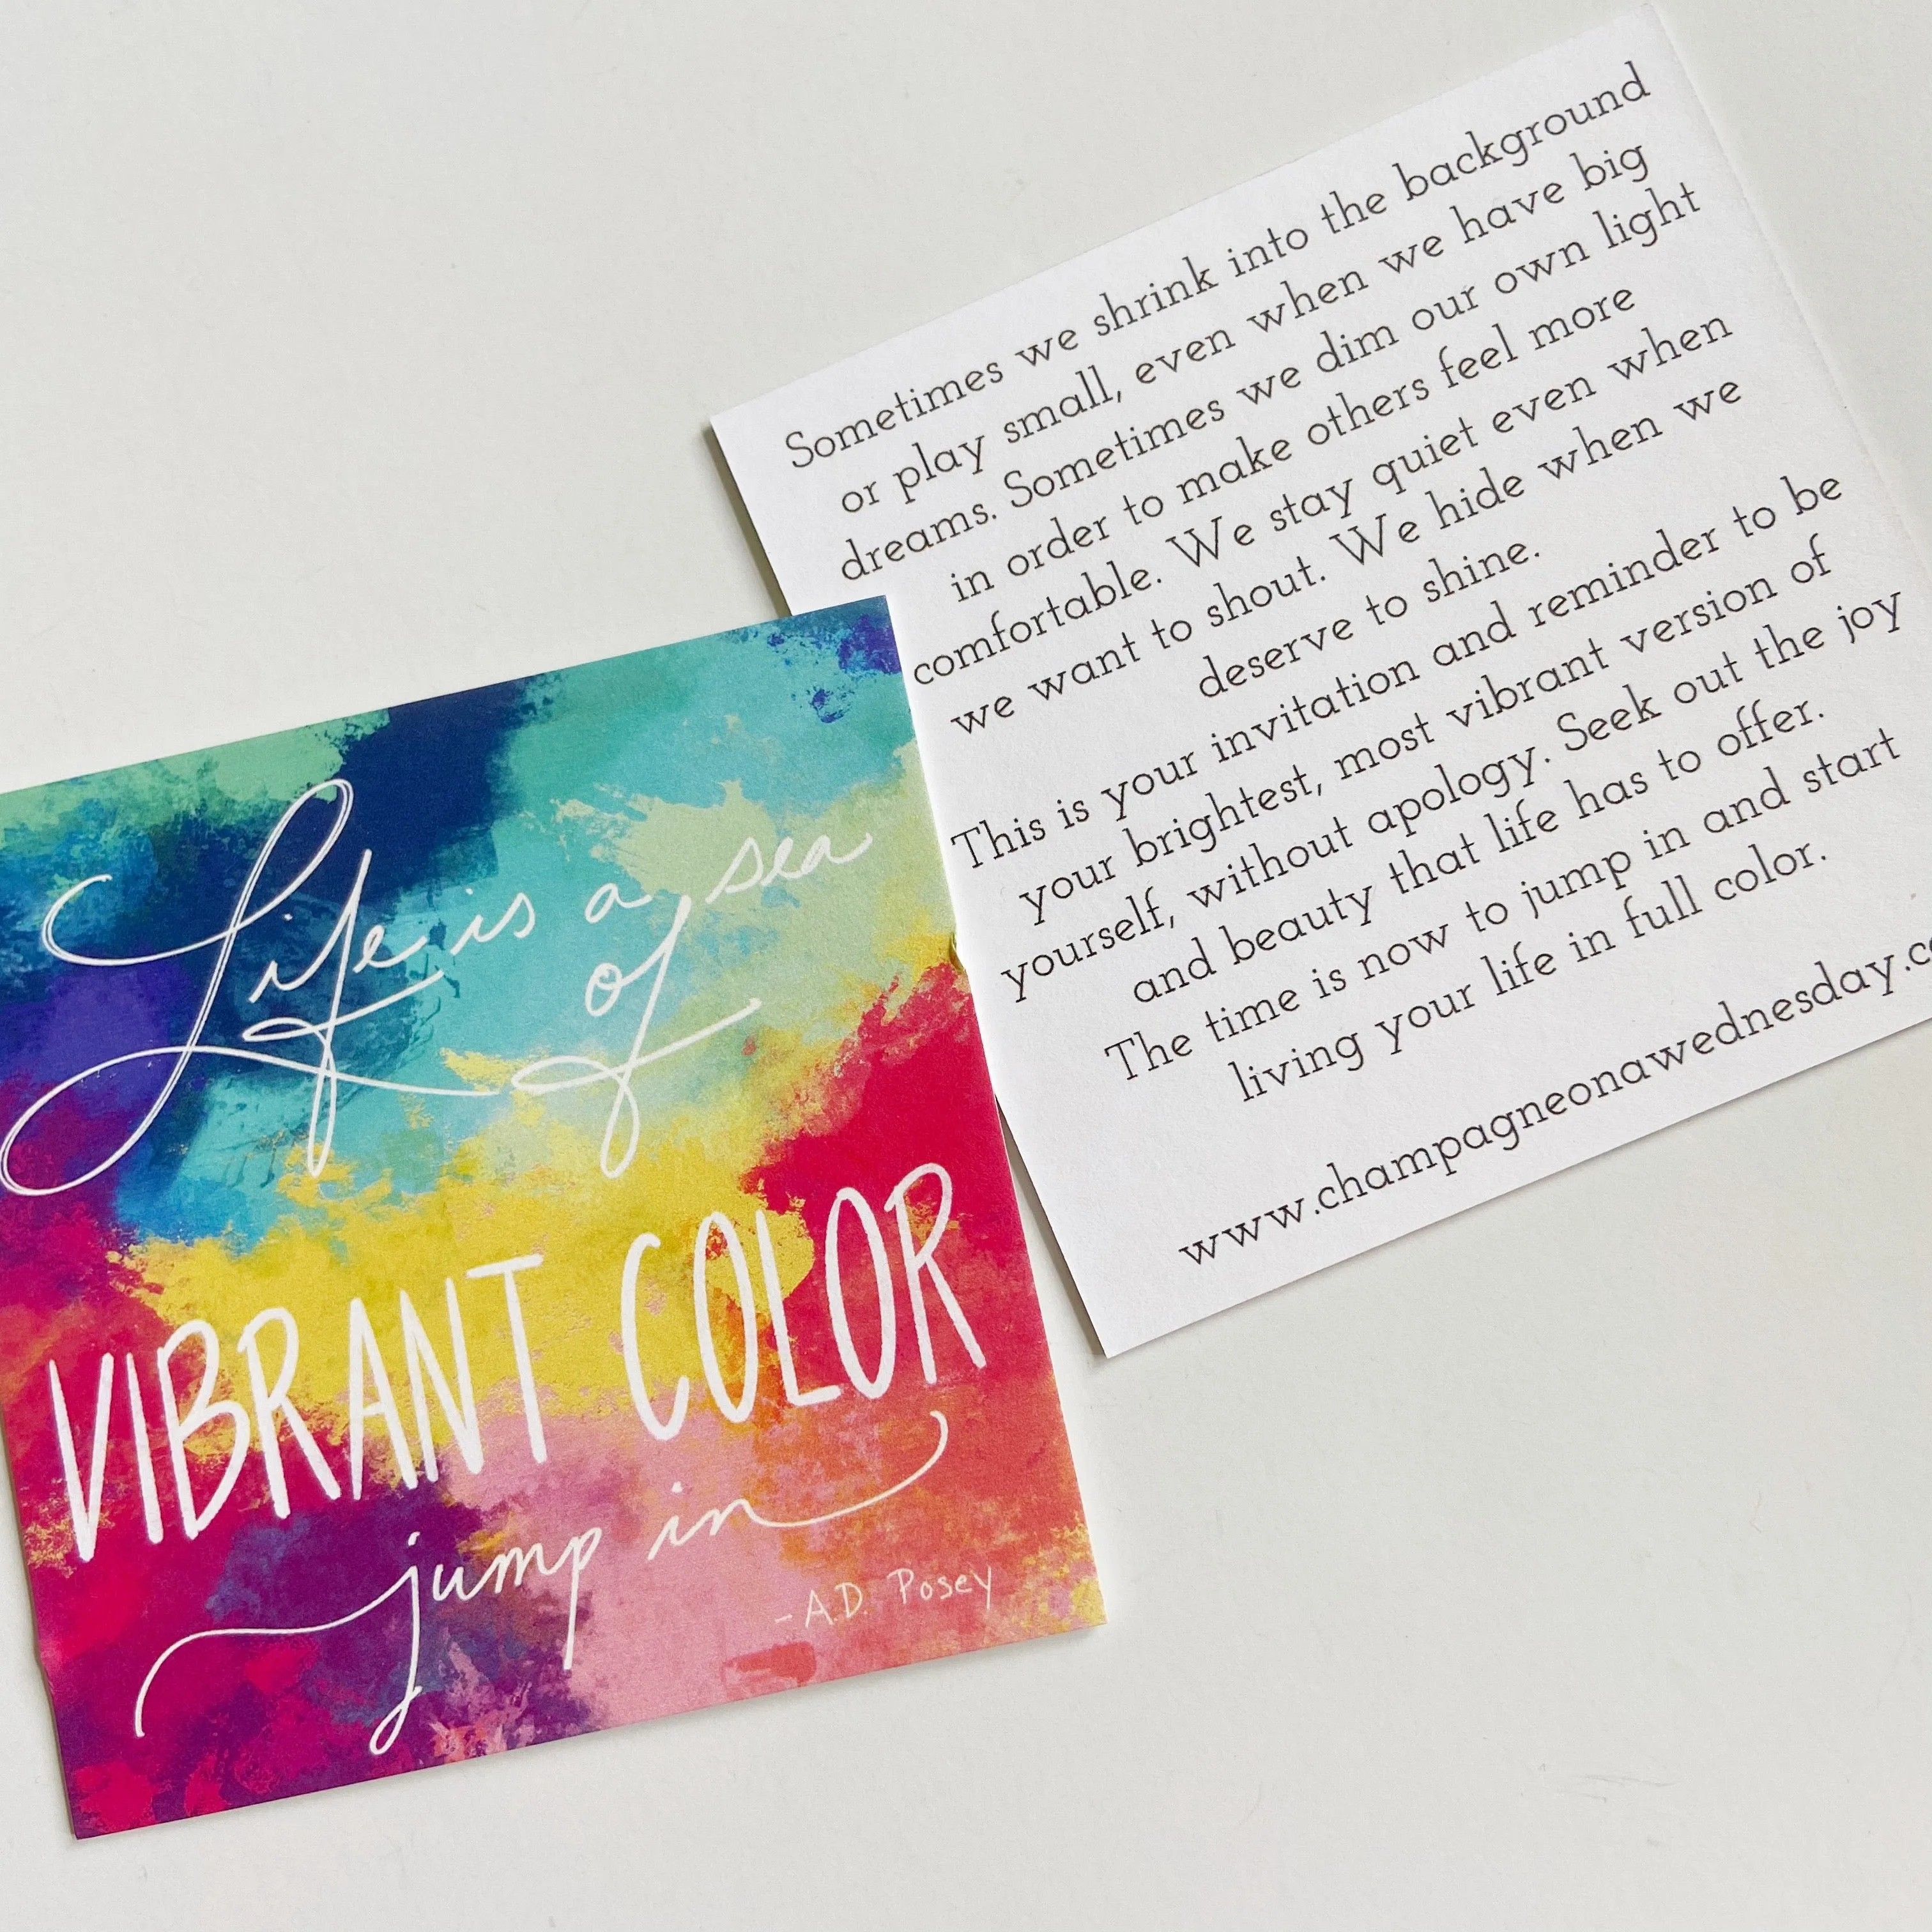 Life is a sea
of
VIBRANT COLOR
jump in
-A.D. Posey
Sometimes we shrink into the background
or play small, even when we have big
dreams. Sometimes we dim our own light
in order to make others feel more
comfortable. We stay quiet even when
we want to shout. We hide when we
deserve to shine.
This is your invitation and reminder to be
your brightest, most vibrant version of
yourself, without apology. Seek out the joy
and beauty that life has to offer.
The time is now to jump in and start
living your life in full color.
www.champagneonawednesday.c